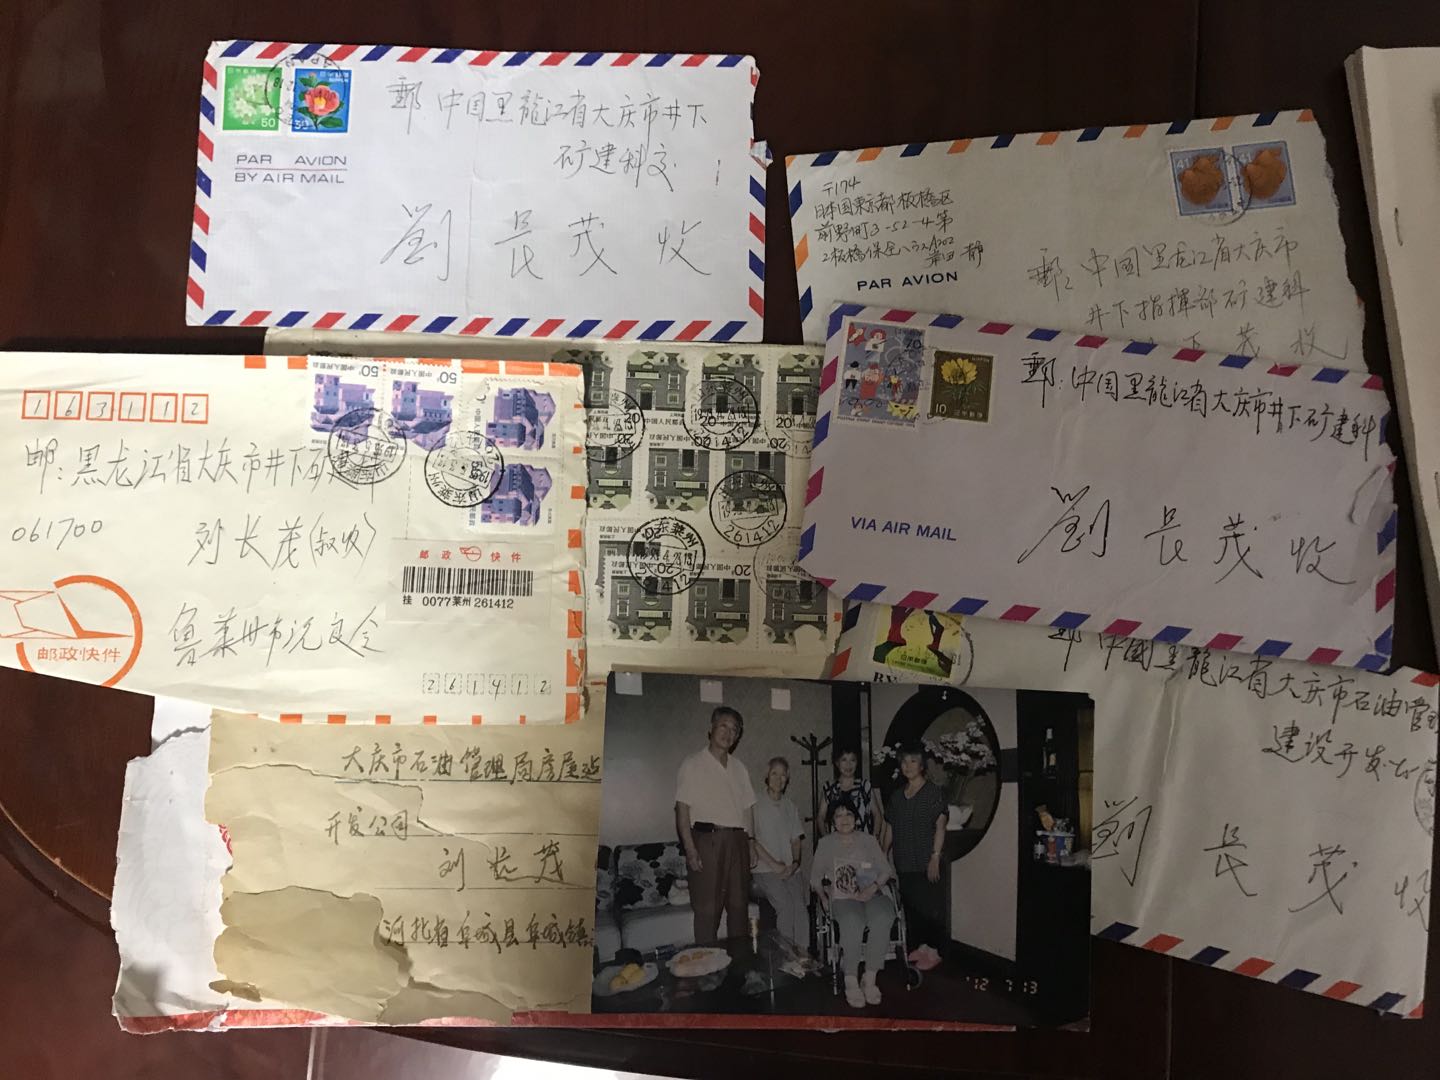 50
30
PAR AVION
BY AIR MAIL
郵:中国黒龍江省大庆市井下
矿建科交
劉長茂收
〒174
日本国東京都板橋区
前野町3-52-4第
2板橋保全ハウスA202
静
PAR AVION
41
41
郵:中国黑龙江省大庆市
井下指揮部矿建科
茂收
70
10
NIPPON
郵:中国黒龍江省大庆市井下矿建科
VIA AIR MAIL
劉長茂收
163112
邮:黑龙江省大庆市井下矿建科
061700
刘长茂(叔收)
邮政快件
挂 0077莱州 261412
鲁莱州市沈良令
邮政快件
261412
50
中国人民邮政
50
中国人民邮政
山东莱州
20
中国人民邮政
山东莱州
261412
郵 中國黒龍江省大庆市石油管
建设开发公
劉長茂收
大庆市石油管理局房屋
开发公司
刘长茂
河北省阜城县阜城镇
'12 7 13